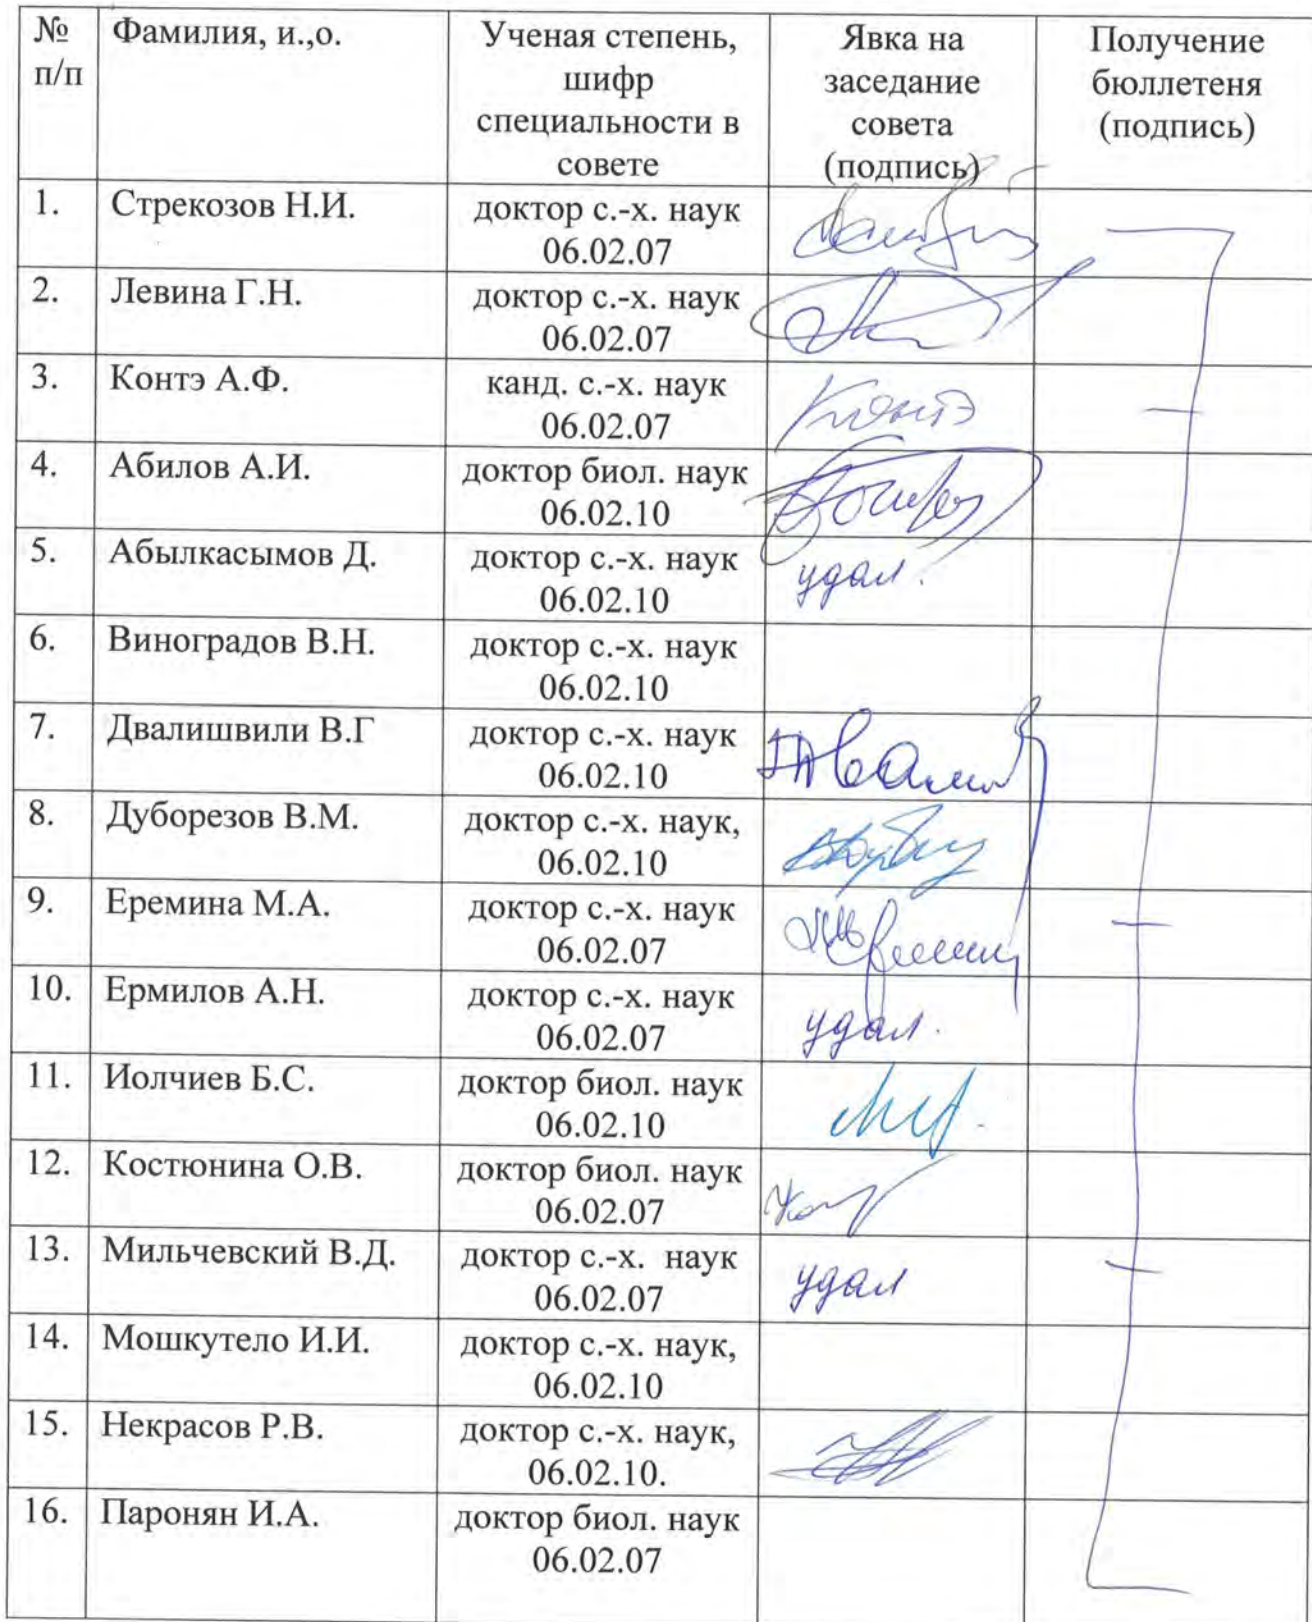 № п/п
Фамилия, и.,о.
Ученая степень, шифр специальности в совете
Явка на заседание совета (подпись)
Получение бюллетеня (подпись)
1. Стрекозов Н.И. доктор с.-х. наук
06.02.07
2. Левина Г.Н. доктор с.-х. наук
06.02.07
3. Контэ А.Ф. канд. с.-х. наук Контэ
06.02.07
4. Абилов А.И. доктор биол. наук
06.02.10
5. Абылкасымов Д. доктор с.-х. наук удал.
06.02.10
6. Виноградов В.Н. доктор с.-х. наук
06.02.10
7. Двалишвили В.Г доктор с.-х. наук
06.02.10
8. Дуборезов В.М. доктор с.-х. наук,
06.02.10
9. Еремина М.А. доктор с.-х. наук
06.02.07
10. Ермилов А.Н. доктор с.-х. наук удал.
06.02.07
11. Иолчиев Б.С. доктор биол. наук
06.02.10
12. Костюнина О.В. доктор биол. наук
06.02.07
13. Мильчевский В.Д. доктор с.-х. наук удал
06.02.07
14. Мошкутело И.И. доктор с.-х. наук,
06.02.10
15. Некрасов Р.В. доктор с.-х. наук,
06.02.10.
16. Паронян И.А. доктор биол. наук
06.02.07